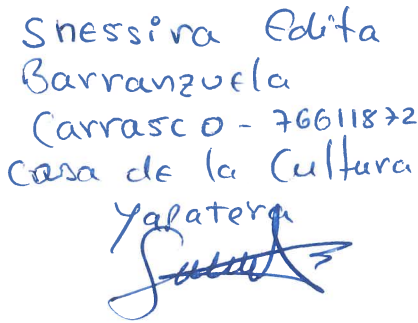 Snessira Edita
Barranzuela
Carrasco - 76611872
Casa de la Cultura
Yapatera